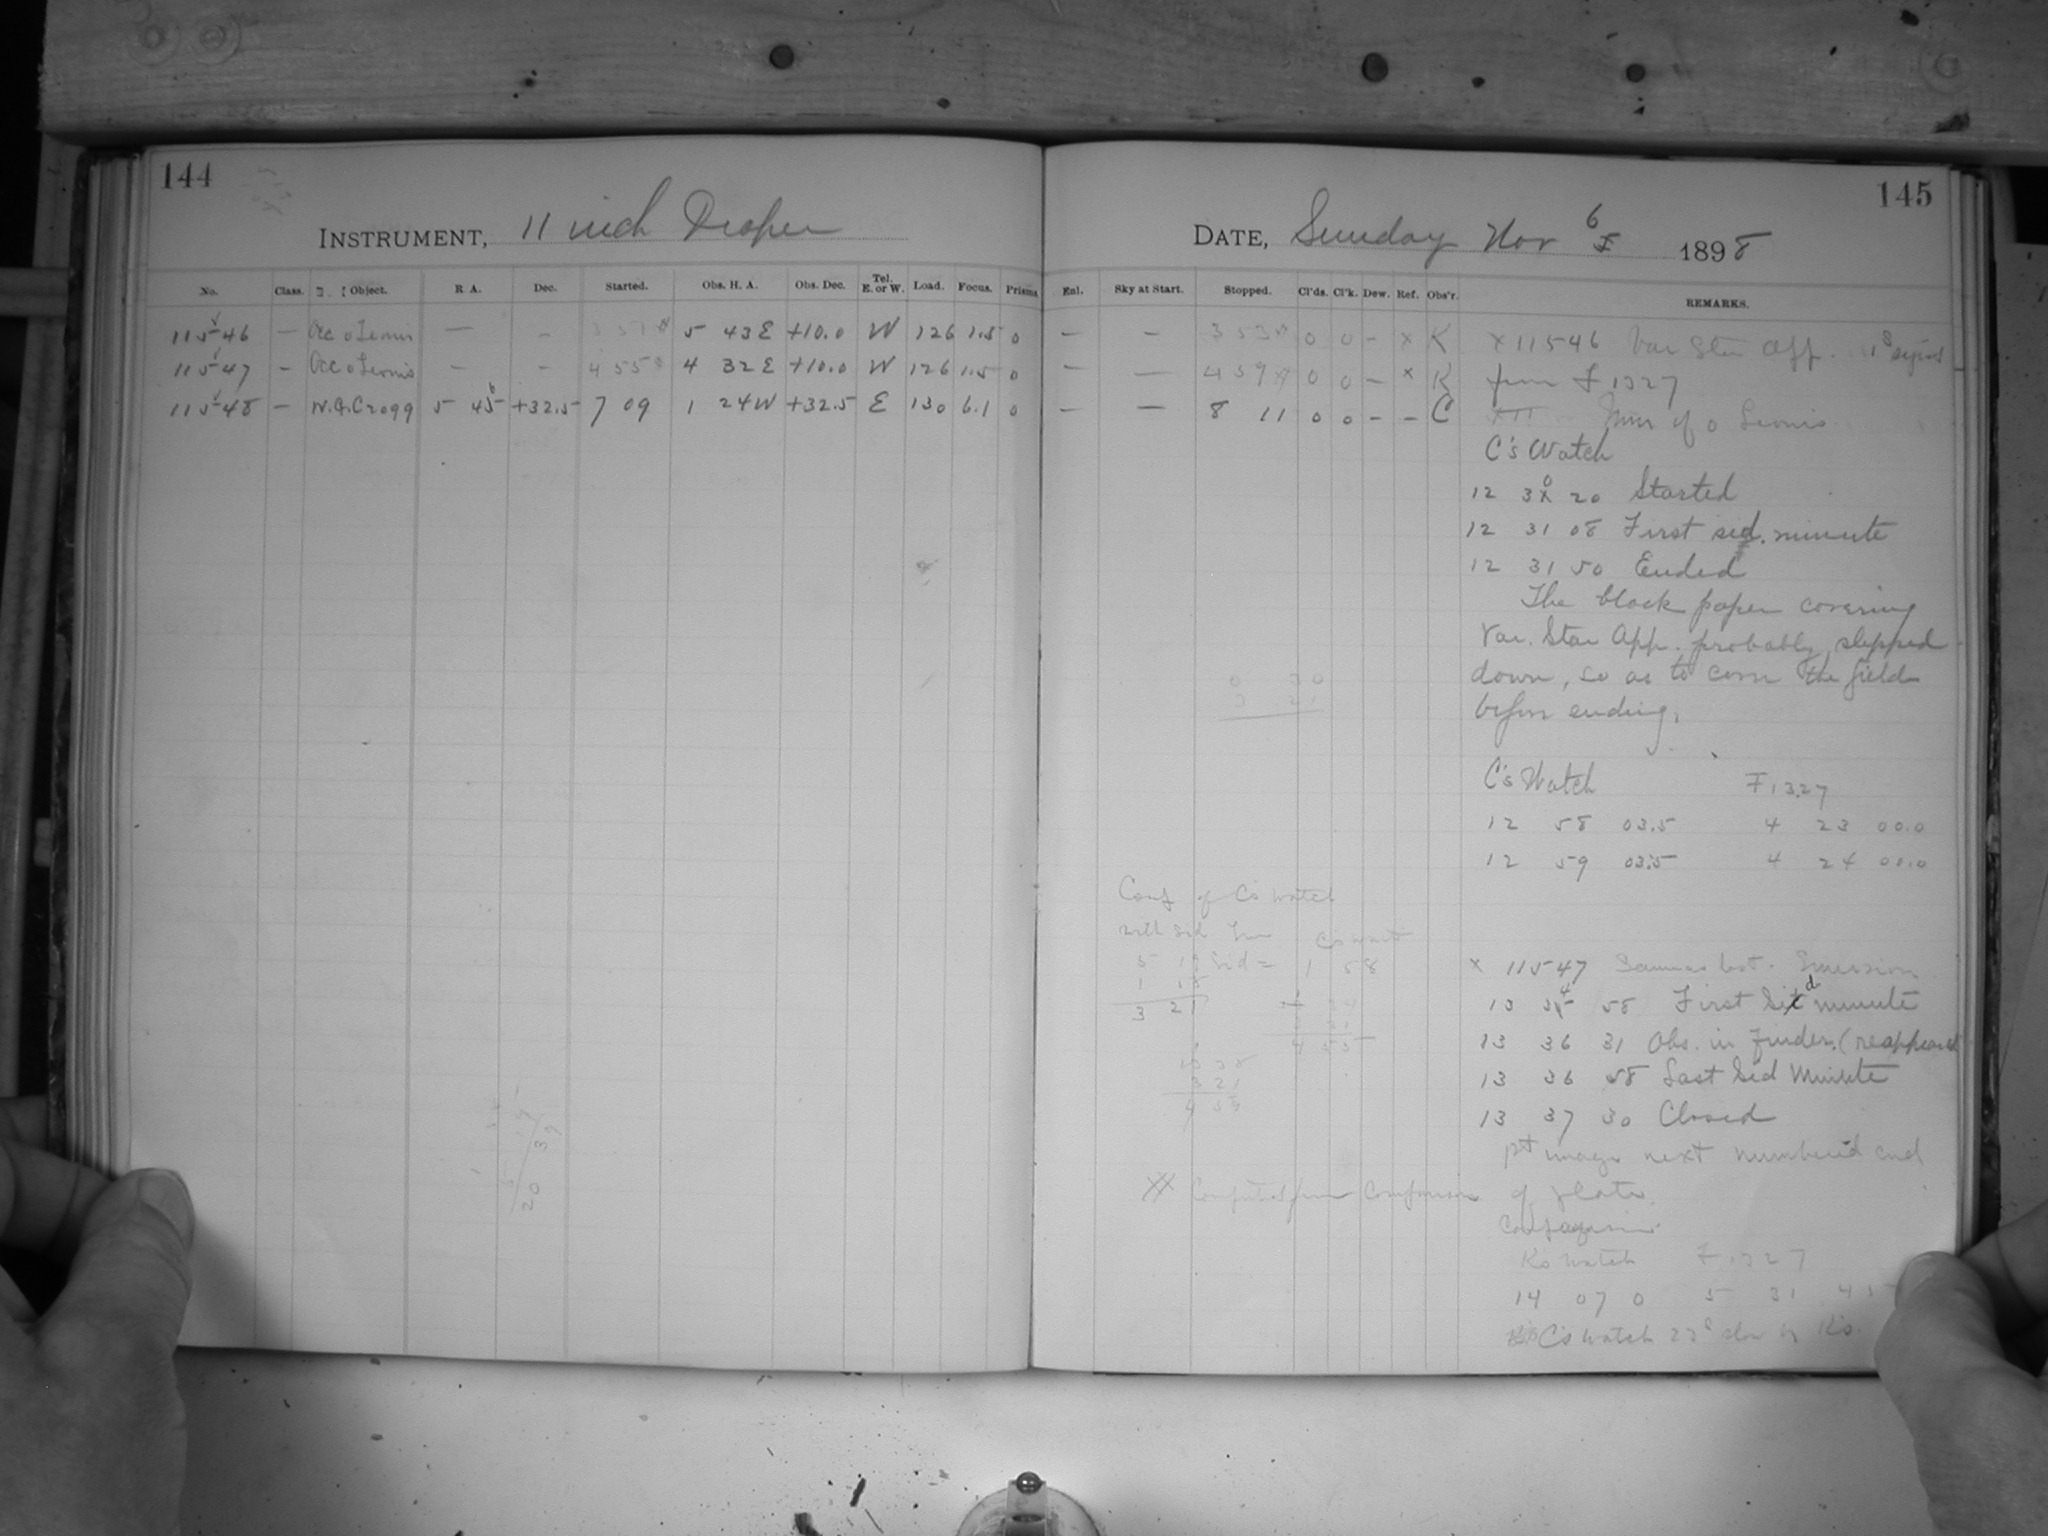 144
INSTRUMENT, 11 inch Draper
No. Class. Object. R A. Dec. Started. Obs. H. A. Obs. Dec. Tel. E. or W. Load. Focus. Prisms
11546 — Occ o Leonis — - 5 43 E +10.0 W 126 1.5 0
11547 - Occ o Leonis - - 4 55 4 32 E +10.0 W 126 1.5 0
11548 — N.G.C 2099 5 45 +32.5 7 09 1 24 W +32.5 E 130 6.1 0
145
DATE, Sunday Nov 6 1898
Enl. Sky at Start. Stopped. Cl'ds. Cl'k. Dew. Ref. Obs'r. REMARKS.
— — 3 53 0 0 - x K x 11546 Var Star App.
— — 4 59 0 0 — x K from F 1327
— — 8 11 0 0 - - C of o Leonis
C's Watch
12 30 20 Started
12 31 08 First sid. minute
12 31 50 Ended
The black paper covering
Var. Star App. probably slipped
down, so as to cover the field
before ending.
C's Watch F 1327
12 58 03.5 4 23 00.0
12 59 03.5 4 24 00.0
of C's watch
with Sid
5 Sid = 1 58
3 21
x 11547 Same as last. Emersion
13 34 58 First Sid minute
13 36 31 Obs. in Finder. (reappeared
13 36 58 Last Sid Minute
13 37 30 Closed
1st image next numbered end
of plate.
Computed from Comparison
Comparison
K's watch F 1327
14 07 0 5 31 45
C's watch 22s slow of K's.
20 39